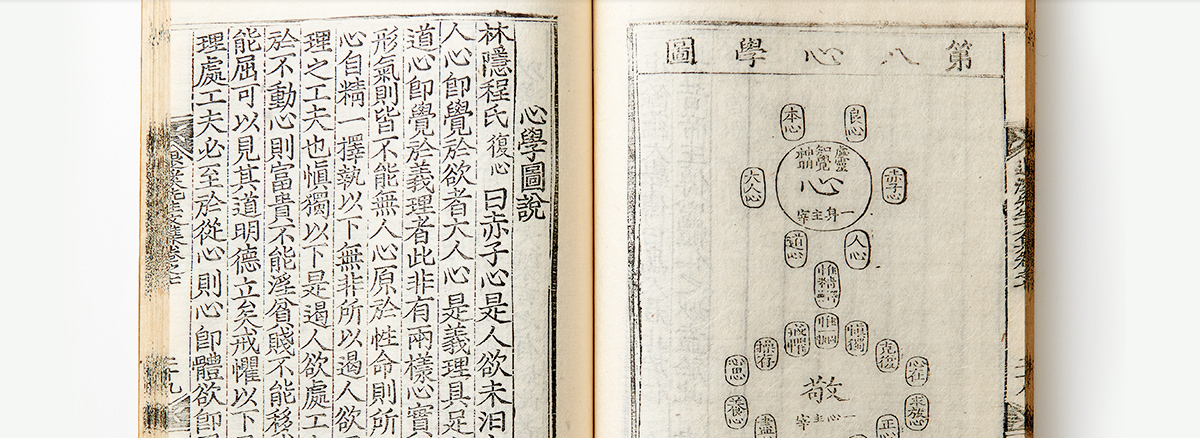 第八心學圖
良心
本心
虛靈
知覺
神明
心
一身主宰
赤子心
大人心
人心
道心
惟精擇善
惟一固執
愼獨
戒懼
克復
操存
心在
心思
敬
一心主宰
求放心
養心
正心
盡
心學圖說
林隱程氏復心曰赤子心是人欲未汨
人心卽覺於欲者大人心是義理具足
道心卽覺於義理者此非有兩樣心實
形氣則皆不能無人心原於性命則所
心自精一擇執以下無非所以遏人欲
理之工夫也愼獨以下是遏人欲處工
於不動心則富貴不能淫貧賤不能移
能屈可以見其道明德立矣戒懼以下
理處工夫必至於從心則心卽體欲卽